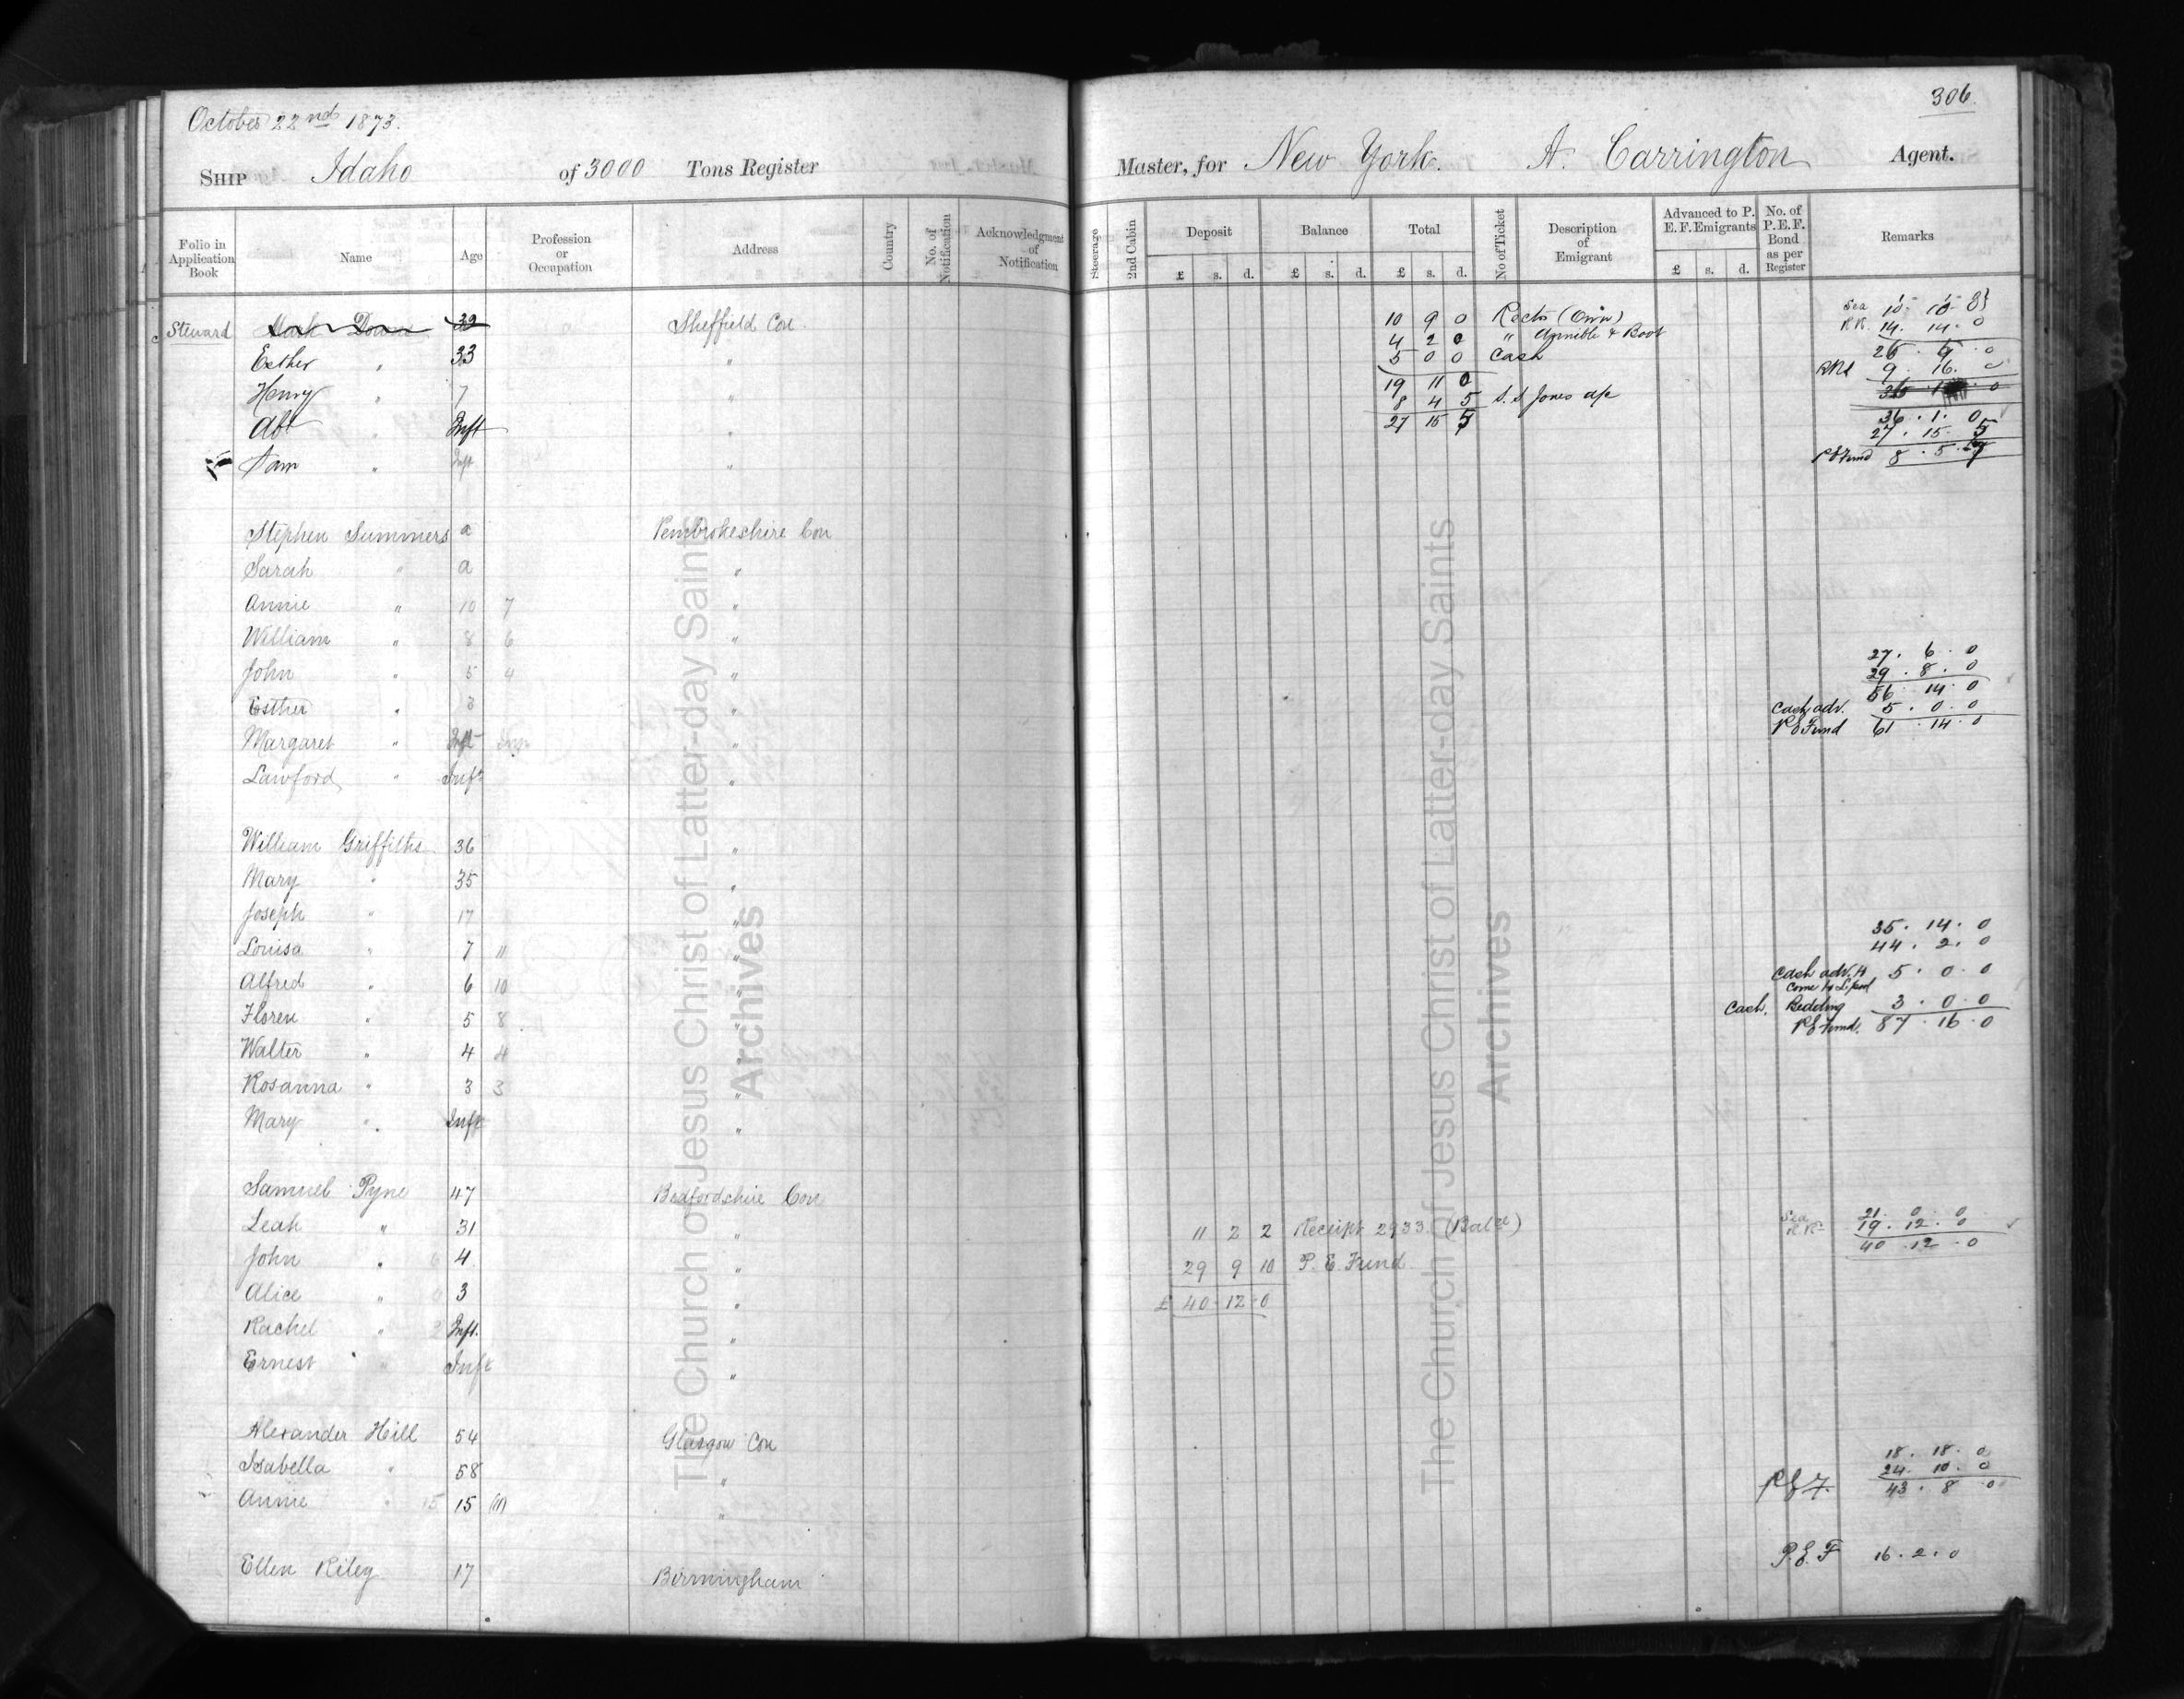 306
October 22nd 1873.
SHIP Idaho of 3000 Tons Register Master, for New York. A. Carrington Agent.
Folio in Application Book Name Age Profession or Occupation Address Country No. of Notification Acknowledgment of Notification Steerage 2nd Cabin Deposit Balance Total No of Ticket Description of Emigrant Advanced to P. E. F. Emigrants No. of P.E.F. Bond as per Register Remarks
£ s. d. £ s. d. £ s. d. £ s. d.
Steward 32 Sheffield Con 10 9 0 Rects (Own) Sea
4 2 0 " & Root R.R. 14. 14. 0
Esther " 33 " 5 0 0 Cash
9. 16. 0
Henry " 7 " 19 11 0
8 4 5 S. S. Jones a/c
Abt " Inft " 27 15 5 36. 1. 0
27. 15. 5
Sam " Inft " P E Fund 8. 5. 7
Stephen Summers a Pembrokeshire Con
Sarah " a "
Annie " 10 7 "
William " 8 6 "
John " 5 4 " 27. 6. 0
29. 8. 0
Esther " 3 " 56. 14. 0
Cash adv. 5. 0. 0
Margaret " Inft " P E Fund 61. 14. 0
Lawford " Inft "
William Griffiths 36 "
Mary " 35 "
Joseph " 17 " 35. 14. 0
Louisa " 7 11 " 44. 2. 0
Alfred " 6 10 " Cash adv. 5. 0. 0
come to L'pool
Floren " 5 8 " Cash. Bedding 3. 0. 0
P E Fund. 87. 16. 0
Walter " 4 4 "
Rosanna " 3 3 "
Mary " Inft "
Samuel Pyne 47 Bedfordshire Con
Leah " 31 " 11 2 2 Receipt 2933 (Balce) Sea 21. 0. 0
R.R. 19. 12. 0
John " 4 " 29 9 10 P. E. Fund 40. 12. 0
Alice " 3 " £ 40. 12. 0
Rachel " Inft. "
Ernest " Inft "
Alexander Hill 54 Glasgow Con
Isabella " 58 " 18. 18. 0
24. 10. 0
Annie " 15 15 " P E F. 43. 8. 0
Ellen Riley 17 Birmingham P. E. F 16. 2. 0
The Church of Jesus Christ of Latter-day Saints
Archives
The Church of Jesus Christ of Latter-day Saints
Archives